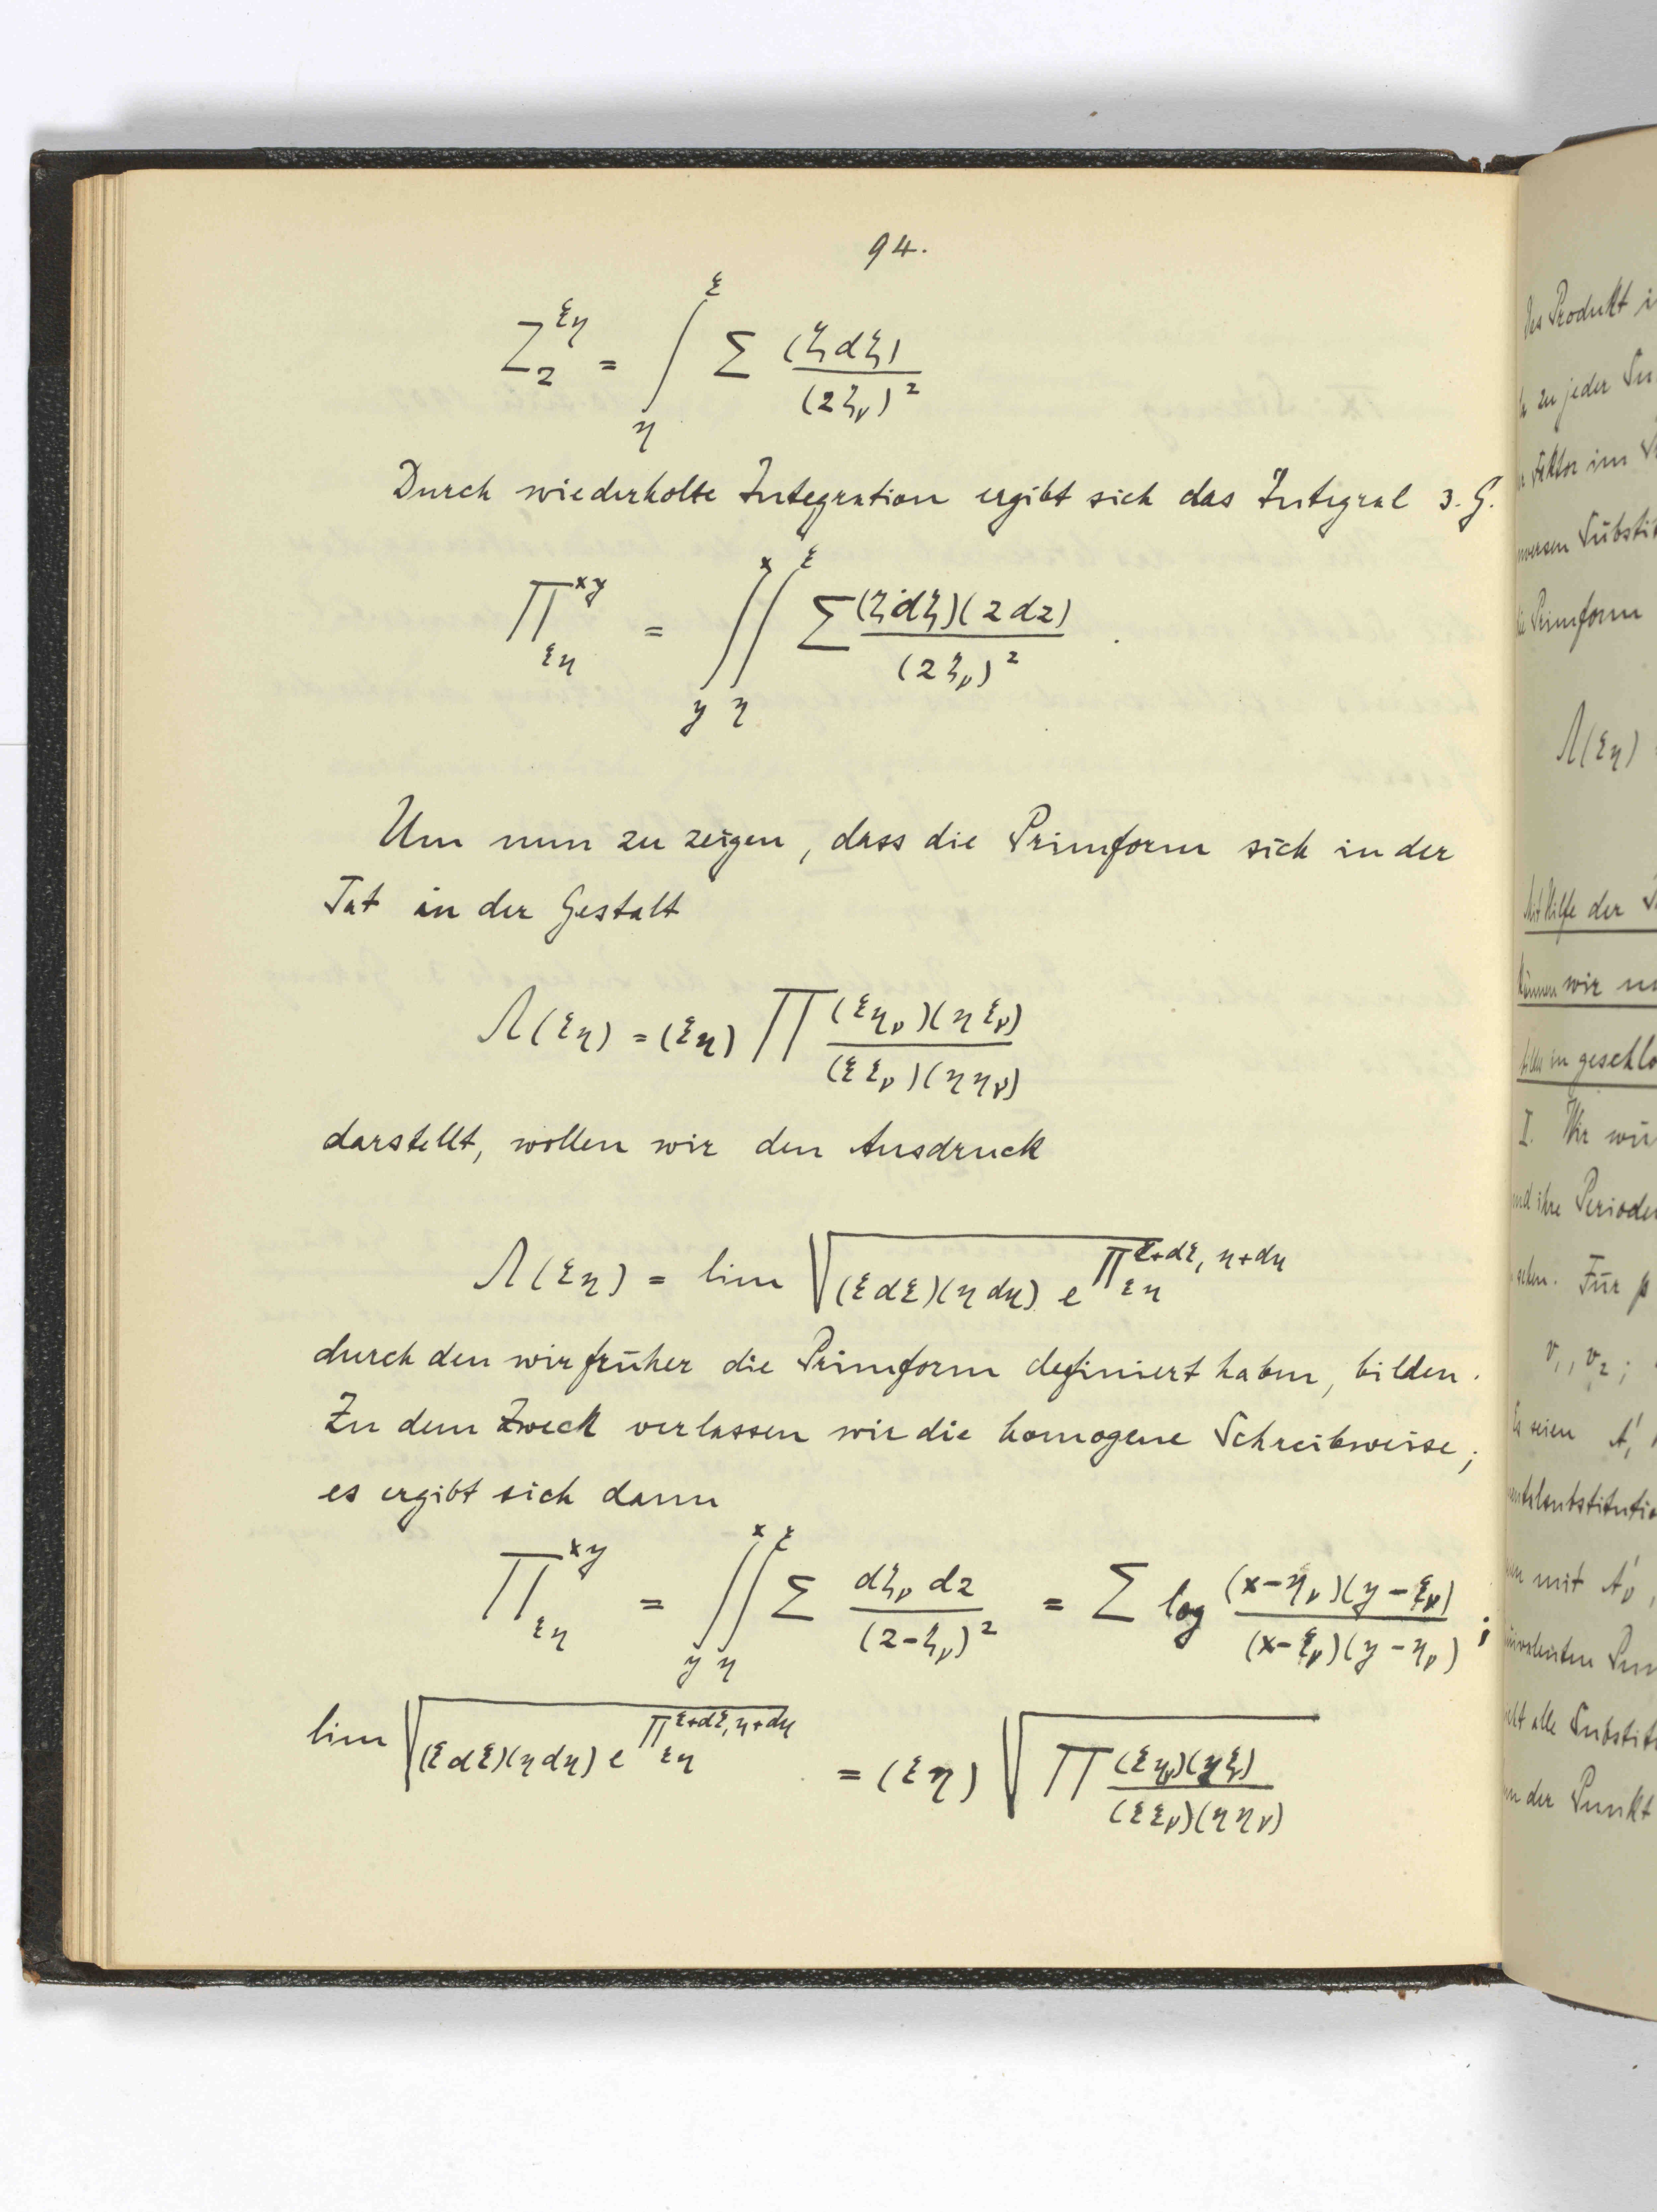 94.
$Z_z^{\xi\eta} = \int_\eta^\xi \sum \frac{(\zeta d\zeta)}{(z\zeta_\nu)^2}$
Durch wiederholte Integration ergibt sich das Integral 3. G.
$\Pi_{\xi\eta}^{xy} = \int_y^x \int_\eta^\xi \sum \frac{(\zeta d\zeta)(z dz)}{(z\zeta_\nu)^2}.$
Um nun zu zeigen, dass die Primform sich in der
Tat in der Gestalt
$\Lambda(\xi\eta) = (\xi\eta) \prod \frac{(\xi\eta_\nu)(\eta\xi_\nu)}{(\xi\xi_\nu)(\eta\eta_\nu)}$
darstellt, wollen wir den Ausdruck
$\Lambda(\xi\eta) = \lim \sqrt{(\xi d\xi)(\eta d\eta) e^{\Pi_{\xi\eta}^{\xi+d\xi, \eta+d\eta}}}$
durch den wir früher die Primform definiert haben, bilden.
Zu dem Zweck verlassen wir die homogene Schreibweise;
es ergibt sich dann
$\Pi_{\xi\eta}^{xy} = \int_y^x \int_\eta^\xi \sum \frac{d\zeta_\nu dz}{(z-\zeta_\nu)^2} = \sum \log \frac{(x-\eta_\nu)(y-\xi_\nu)}{(x-\xi_\nu)(y-\eta_\nu)};$
$\lim \sqrt{(\xi d\xi)(\eta d\eta) e^{\Pi_{\xi\eta}^{\xi+d\xi, \eta+d\eta}}} = (\xi\eta) \sqrt{\prod \frac{(\xi\eta_\nu)(\eta\xi)}{(\xi\xi_\nu)(\eta\eta_\nu)}}$
des Produkt
zu jeder
Faktor im
Primform
$\Lambda(\xi\eta)$
Mit Hilfe der
können wir
in geschlo
I. Wir
und ihre Perioden
Für p
$v_1, v_2;$
Es seien $A_1'$
mit $A_\nu'$,
alle Substit
der Punkt